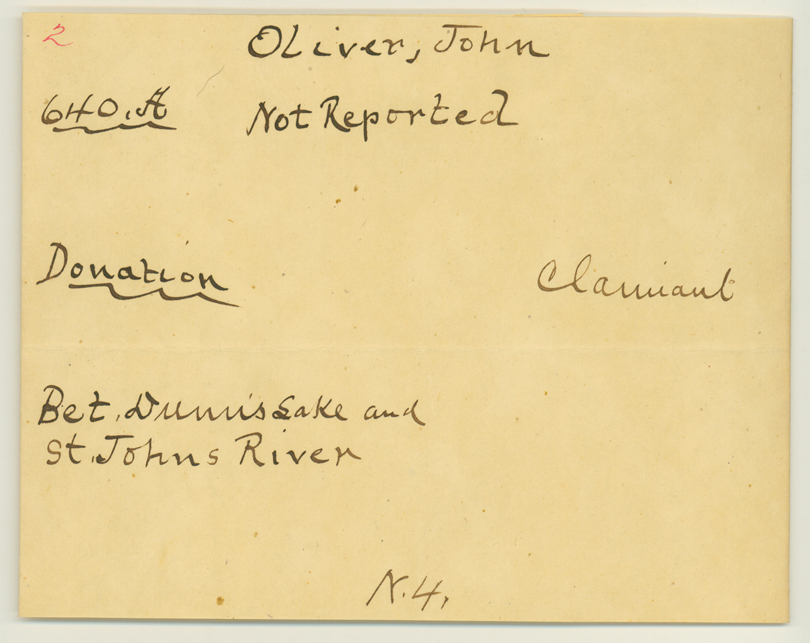 2
Oliver, John
640.A Not Reported
Donation Claimant
Bet. Dunn's Lake and
St. Johns River
N.4.